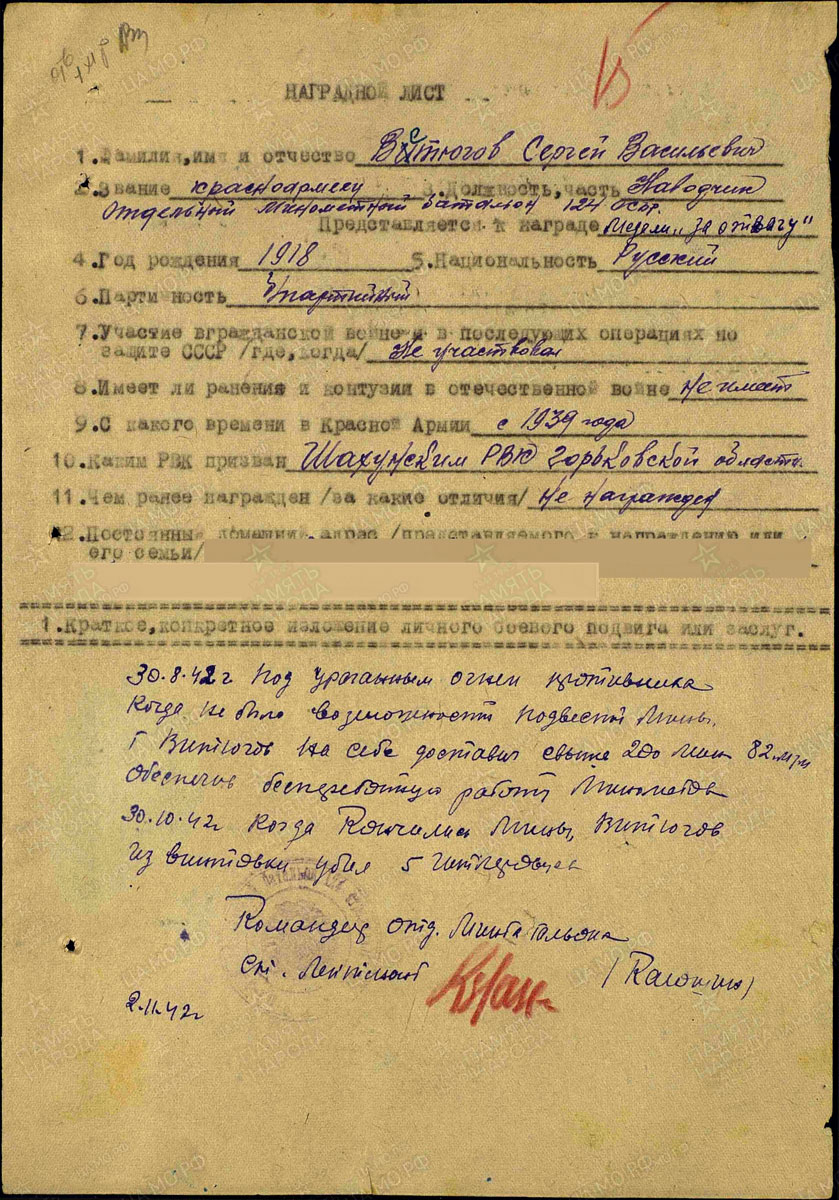 НАГРАДНОЙ ЛИСТ
1.Фамилия,имя и отчество Витюгов Сергей Васильевич
2.Звание красноармеец 3.Должность,часть Наводчик
Отдельный минометный батальон 124 осбр.
Представляется к награде Медали „за отвагу"
4.Год рождения 1918 5.Национальность Русский
6.Партийность б/партийный
7.Участие вгражданской войне и в последующих операциях по
защите СССР /где,когда/ Не участвовал
8.Имеет ли ранения и контузии в отечественной войне не имеет
9.С какого времени в Красной Армии с 1939 года
10.Каким РВК призван Шахунским РВК Горьковской области
11.Чем ранее награжден /за какие отличия/ не награжден
12.Постоянный домашний адрес /представляемого к награждению или
его семьи/
1.Краткое,конкретное изложение личного боевого подвига или заслуг.
30.8.42 г под ураганным огнем противника
когда не было возможности подвести мины,
т Витюгов на себе доставил свыше 200 мин 82 м/м
обеспечив бесперебойную работу минометов
30.10.42 г когда кончились мины, Витюгов
из винтовки убил 5 гитлеровцев
Командир отд. минбатальона
ст. лейтенант
2.11.42 г